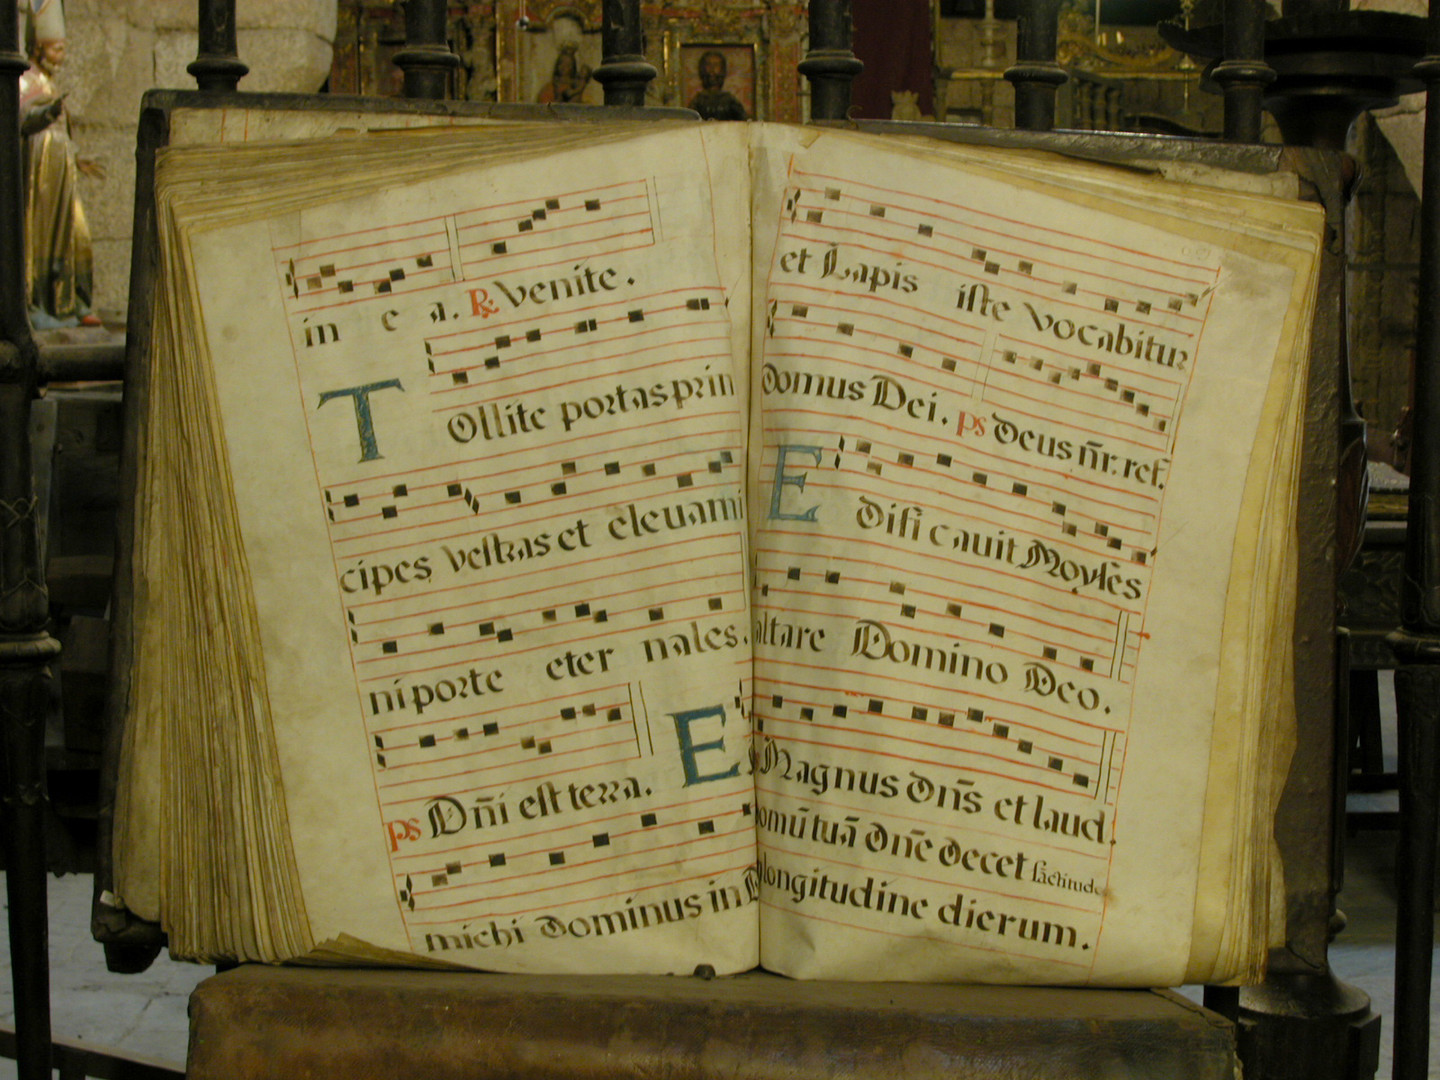 in e a. R Venite.
Tollite portas prin
cipes vestras et eleuami
ni porte eter nales.
ps Dñi est terra. E
michi dominus in
et Lapis iste vocabitur
domus Dei. ps deus nr̄. ref.
Edifi cauit Moyses
altare Domino Deo.
Magnus dn̄s et laud.
domū tuā dn̄e decet sāctitudo
longitudine dierum.